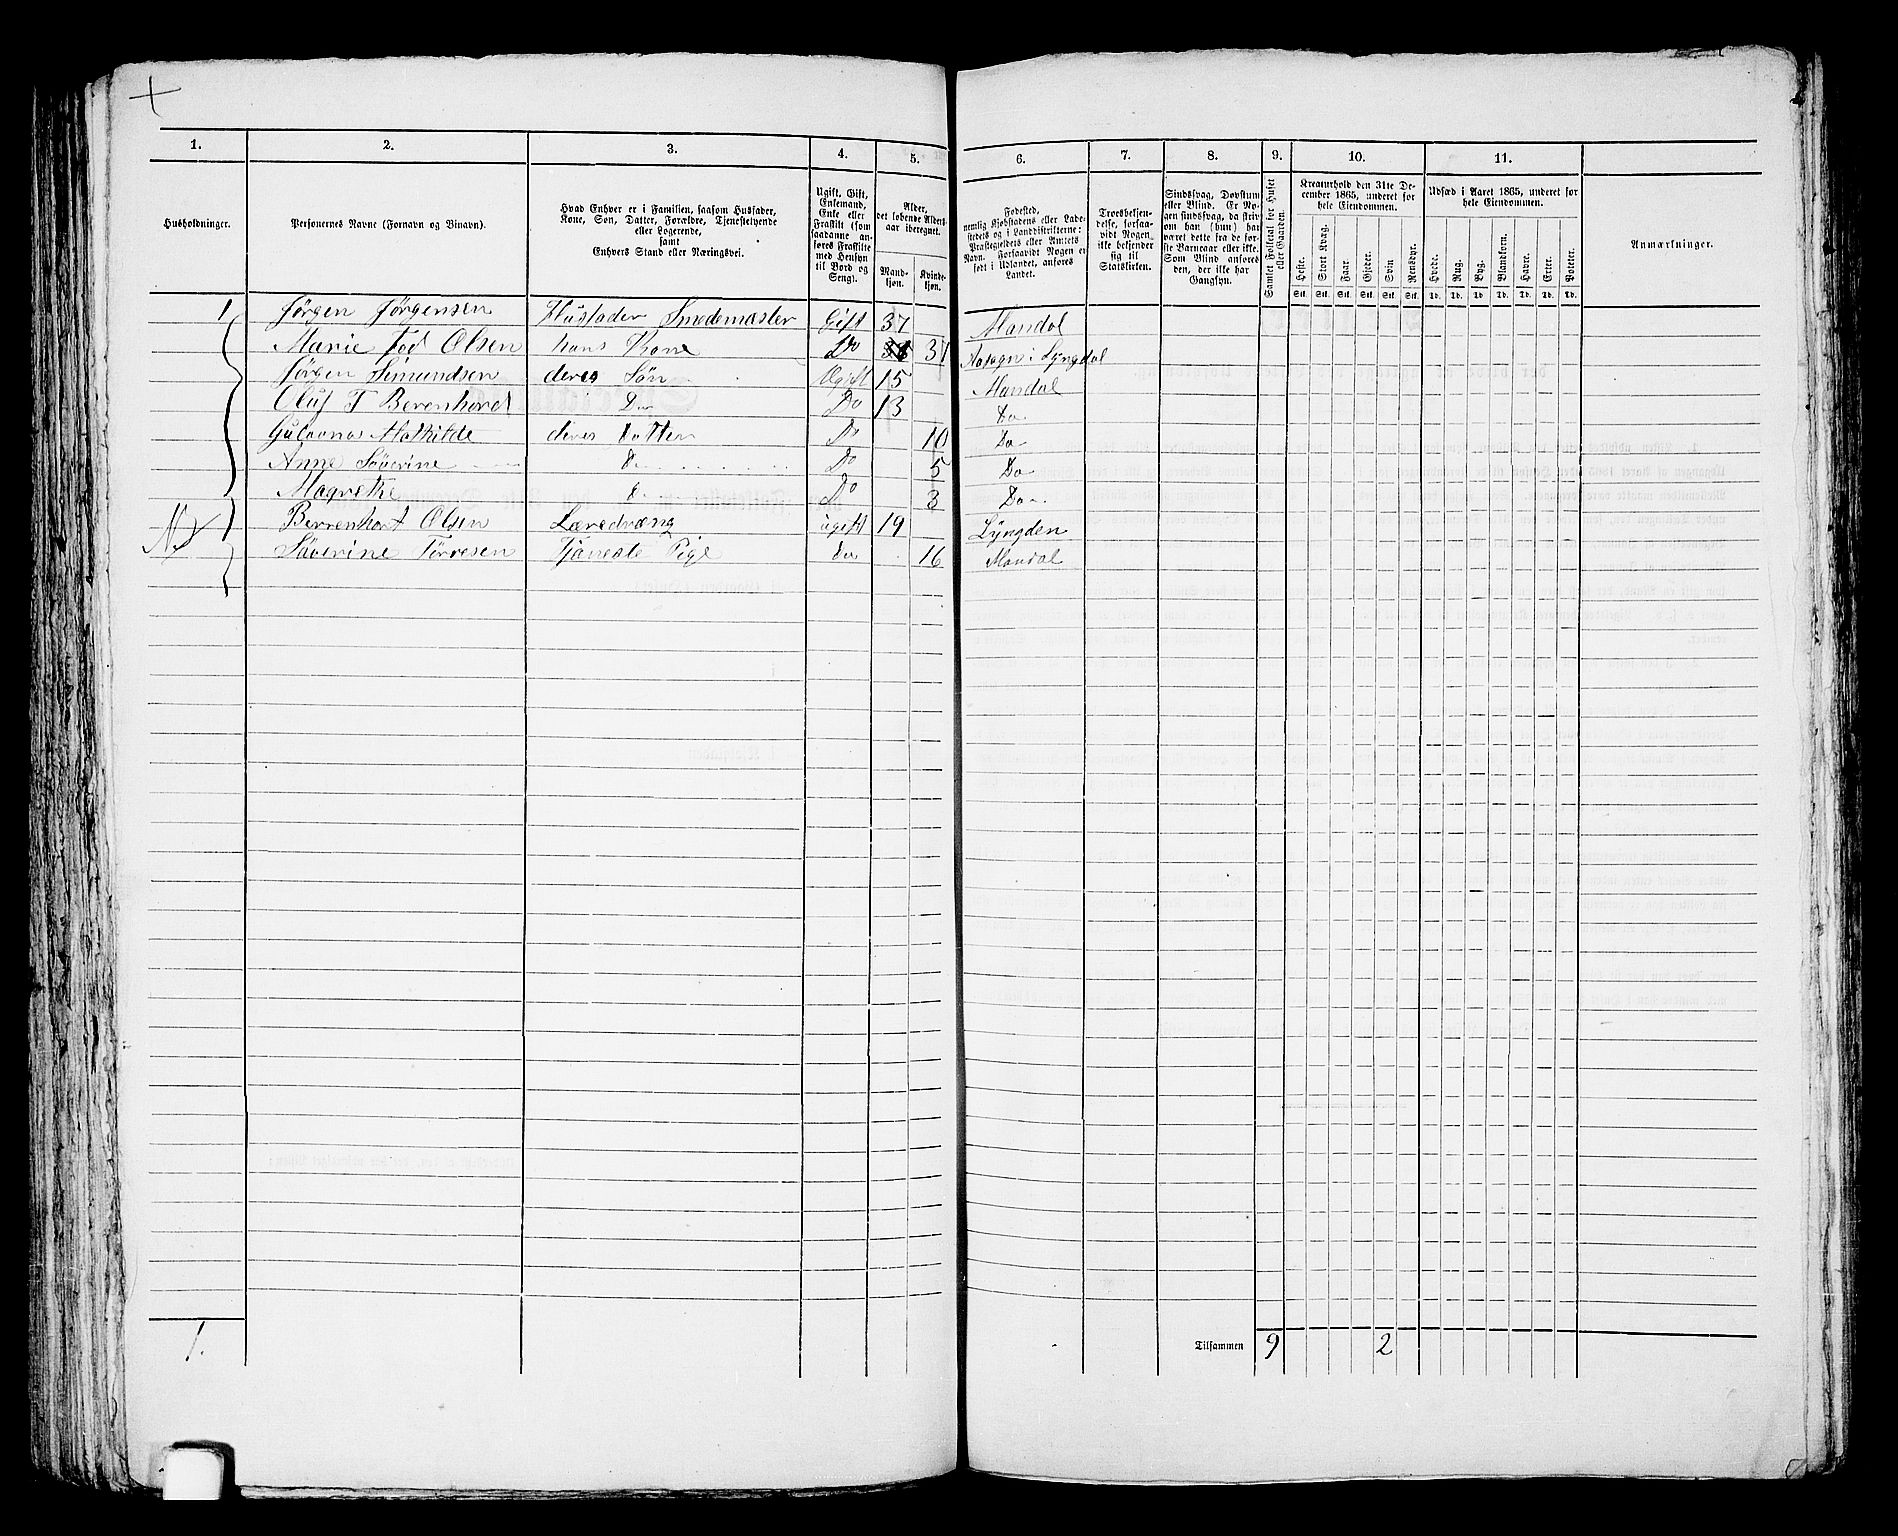 1. 2. 3. 4. 5. 6. 7. 8. 9. 10. 11.
Husholdninger. Personernes Navne (Fornavn og Binavn). Hvad Enhver er i Familien, saasom Husfader, Kone, Søn, Datter, Forældre, Tjenestetyende eller Logerende, samt Enhvers Stand eller Næringsvei. Ugift, Gift, Enkemand, Enke eller Fraskilt (som saadanne anføres Fraskilte med Hensyn til Bord og Seng). Alder, det løbende Alders-aar iberegnet. Mand-kjøn. Kvinde-kjøn.
Fødested, nemlig Kjøbstadens eller Ladestedets og i Landdistrikterne: Præstegjeldets eller Amtets Navn. Forsaavidt Nogen er født i Udlandet, anføres Landet. Troesbekjendelse, forsaavidt Nogen ikke bekjender sig til Statskirken. Sindssvag, Døvstum eller Blind. Er Nogen sindssvag, da skrives om han (hun) har været dette fra de første Barneaar eller ikke. Som Blind anføres den, der ikke har Gangsyn. Samlet Folketal for Huset eller Gaarden. Kreaturhold den 31te December 1865, underet for hele Eiendommen. Udsæd i Aaret 1865, underet for hele Eiendommen. Anmærkninger.
Heste. Stort Kvæg. Faar. Gjeder. Svin Rensdyr. Hvede. Rug. Byg. Blandkorn. Havre. Erter. Poteter.
Stk. Stk. Stk. Stk. Stk. Stk. Td. Td. Td. Td. Td. Td. Td.
1 Jørgen Jørgensen Husfader Smedemæster Gift 37 Mandal
Marie Olsen hans Kone Do 37 i Lyngdal
Jørgen Simundsen deres Søn Ugift 15 Mandal
Oluf T Berenhard Do Do 13 Do
Mathilde deres Datter Do 10 Do
Anne Søverine Do Do 5 Do
Magrethe Do Do 3 Do
Berrenhart Olsen Læredræng ugift 19 Lyngden
Søverine Tørresen Tjaneste Pige Do 16 Mandal
1. Tilsammen 9 2